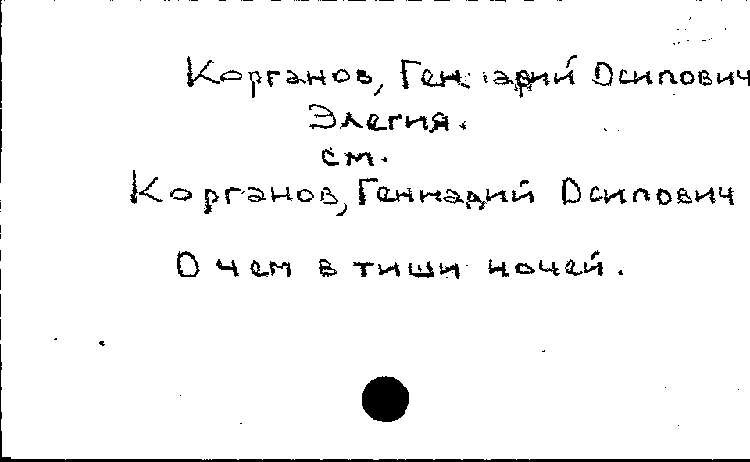 Корганов, Геннадий Осипович
Элегия.
см.
Корганов, Геннадий Осипович
О чем в тиши ночей.